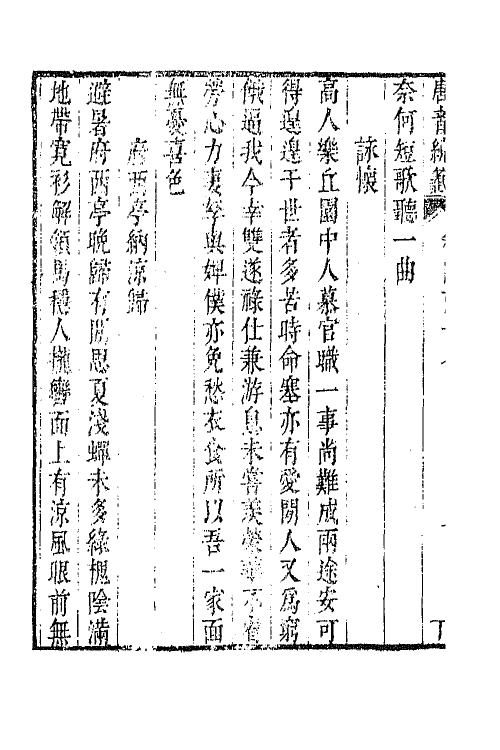 唐音統籤
奈何短歌聽一曲
詠懷
高人樂丘園中人慕官職一事尚難成兩途安可
得遑遑干世者多苦時命塞亦有愛閒人又爲窮
餓逼我今幸雙遂祿仕兼游息未嘗羨榮華不省
勞心力妻孥與婢僕亦免愁衣食所以吾一家面
無憂喜色
府西亭納涼歸
避暑府西亭晚歸有閒思夏淺蟬未多綠槐陰滿
地帶寬衫解領馬穩人攏轡面上有涼風眼前無